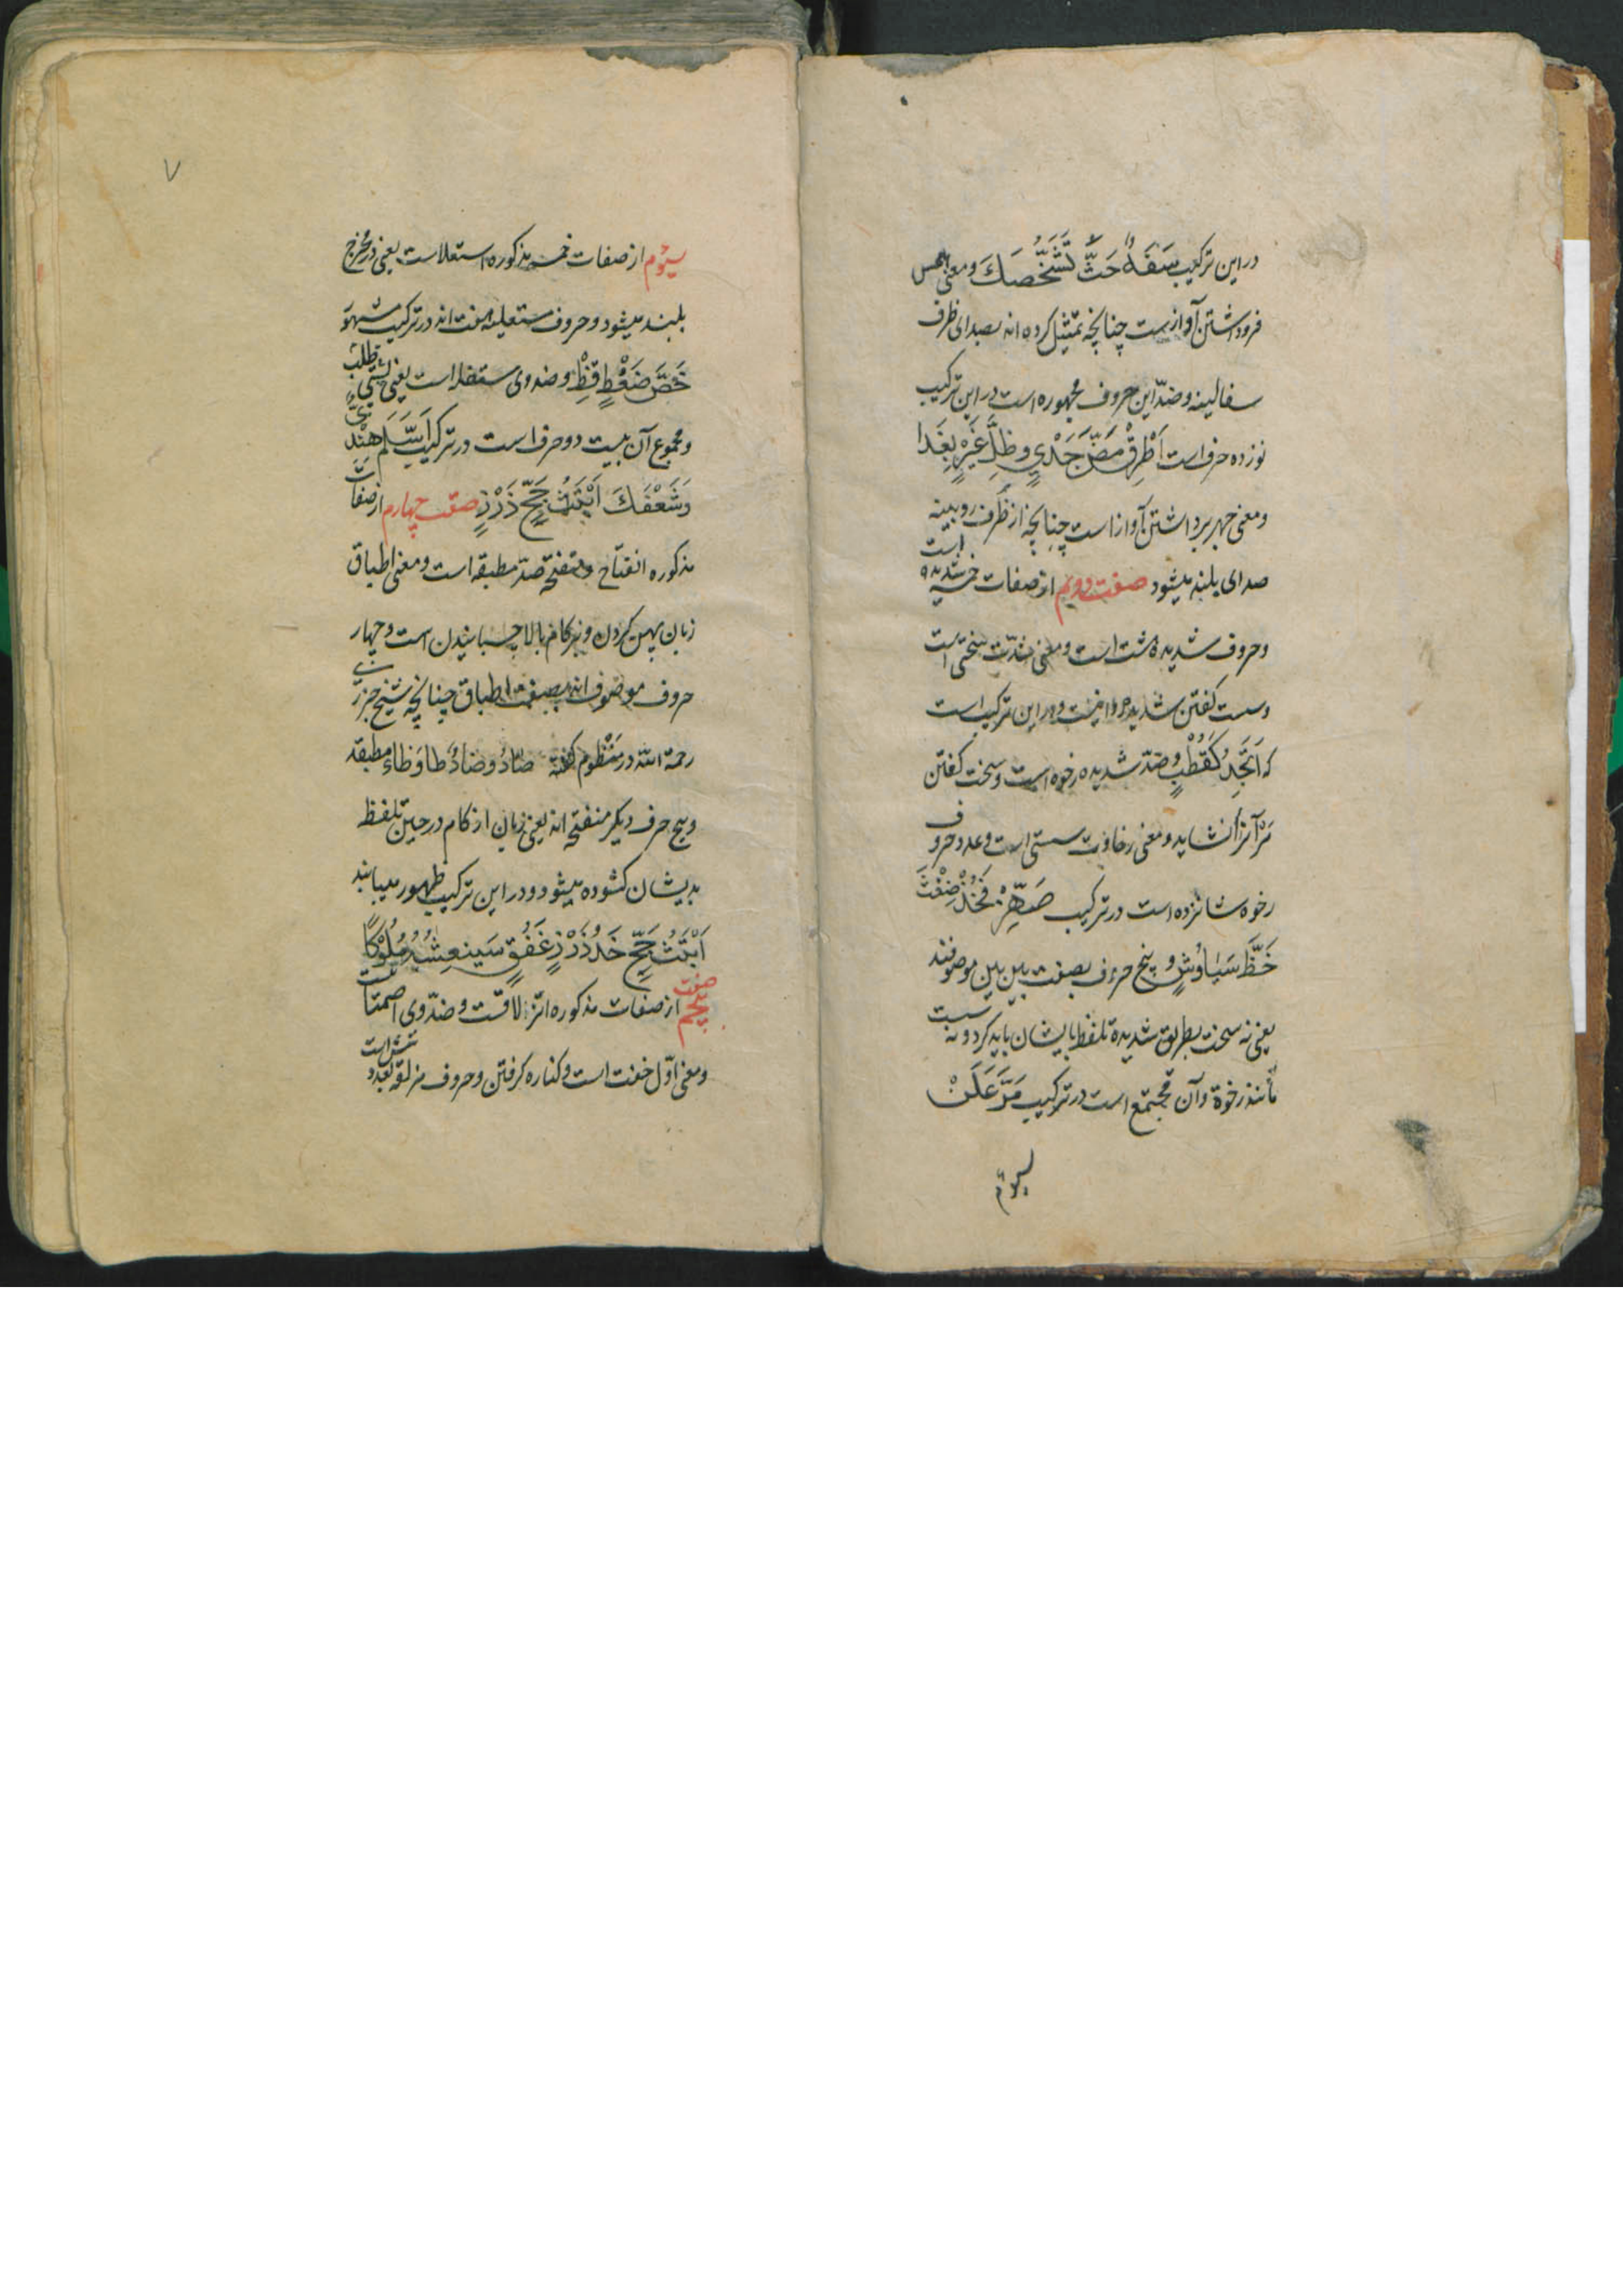 در این ترکیب سَقَهُ حَثَّ تَشَخُّصَكَ و معنی همس
فروداشتن آوازست چنانچه تمثیل کرده اند بصدای ظرف
سفالینه و ضدّ این حروف مجهوره است در این ترکیب
نوزده حرف است اَطْرِقْ مَضَّ جَدْيٍ وظِلَّ غَيْرٍ بِغَدا
و معنی جهر برداشتن آواز است چنانچه از ظرف رویینه
صدای بلند میشود صفت دویم از صفات خمسه شدیده است
و حروف شدیده هشت است و معنی شدّت سختی است
و سست گفتن شدیده روا نیست و در این ترکیب است
که اَتَجِدُ كَقُطْبٍ و ضدّ شدیده رخوه است و سخت گفتن
مر آنرا نشاید و معنی رخاوت سستی است و عدد حروف
رخوه شانزده است در ترکیب صَهِّرْ فَخُذْ ضِغْثَ
خَظَّ سَيَاوُشٍ و پنج حرف بصفت بین بین موصوفند
یعنی نه سخت بطریق شدیده تلفظ بایشان باید کرد و نه سست
مانند رخوة و آن مجتمع است در ترکیب مَرَّعَلَنْ
سیوم
۷
سیوم از صفات خمسه مذکوره استعلاست یعنی در مخرج
بلند میشود و حروف مستعلیه هفت اند در ترکیب مشهور
خَصَّ ضَغْطٍ قِظْ و ضد وی مستفله است یعنی پستی طلب
و مجموع آن بیست دو حرف است در ترکیب اَسَّلَم هِنْدٍ
وَشَعْفَكَ اَبْتَثُ جَحّ ذَرْزٍ صفت چهارم از صفات
مذکوره انفتاح و منفتحه ضدّ مطبقه است و معنی اطباق
زبان پهن کردن و بر کام بالا چسبانیدن است و چهار
حروف موصوف اند بصفت اطباق چنانچه شیخ جزری
رحمة الله در منظوم گفته صَادُ وضَادُ طا وَظاءٌ مطبقه
و پنج حرف دیگر منفتحه اند یعنی زبان از کام در حین تلفظ
بدیشان گشوده میشود و در این ترکیب ظهور مییابند
اَبْتَثُ جَحّ خَدُ ذَرْزٍ غَفُقٍ سَينعِشُدُ مُلُوْكًا
صفت پنجم از صفات مذکوره انزلاقست و ضدّ وی اصمتا تست
و معنی اوّل خفت است و کناره گرفتن و حروف مزلقه بعدد شش است